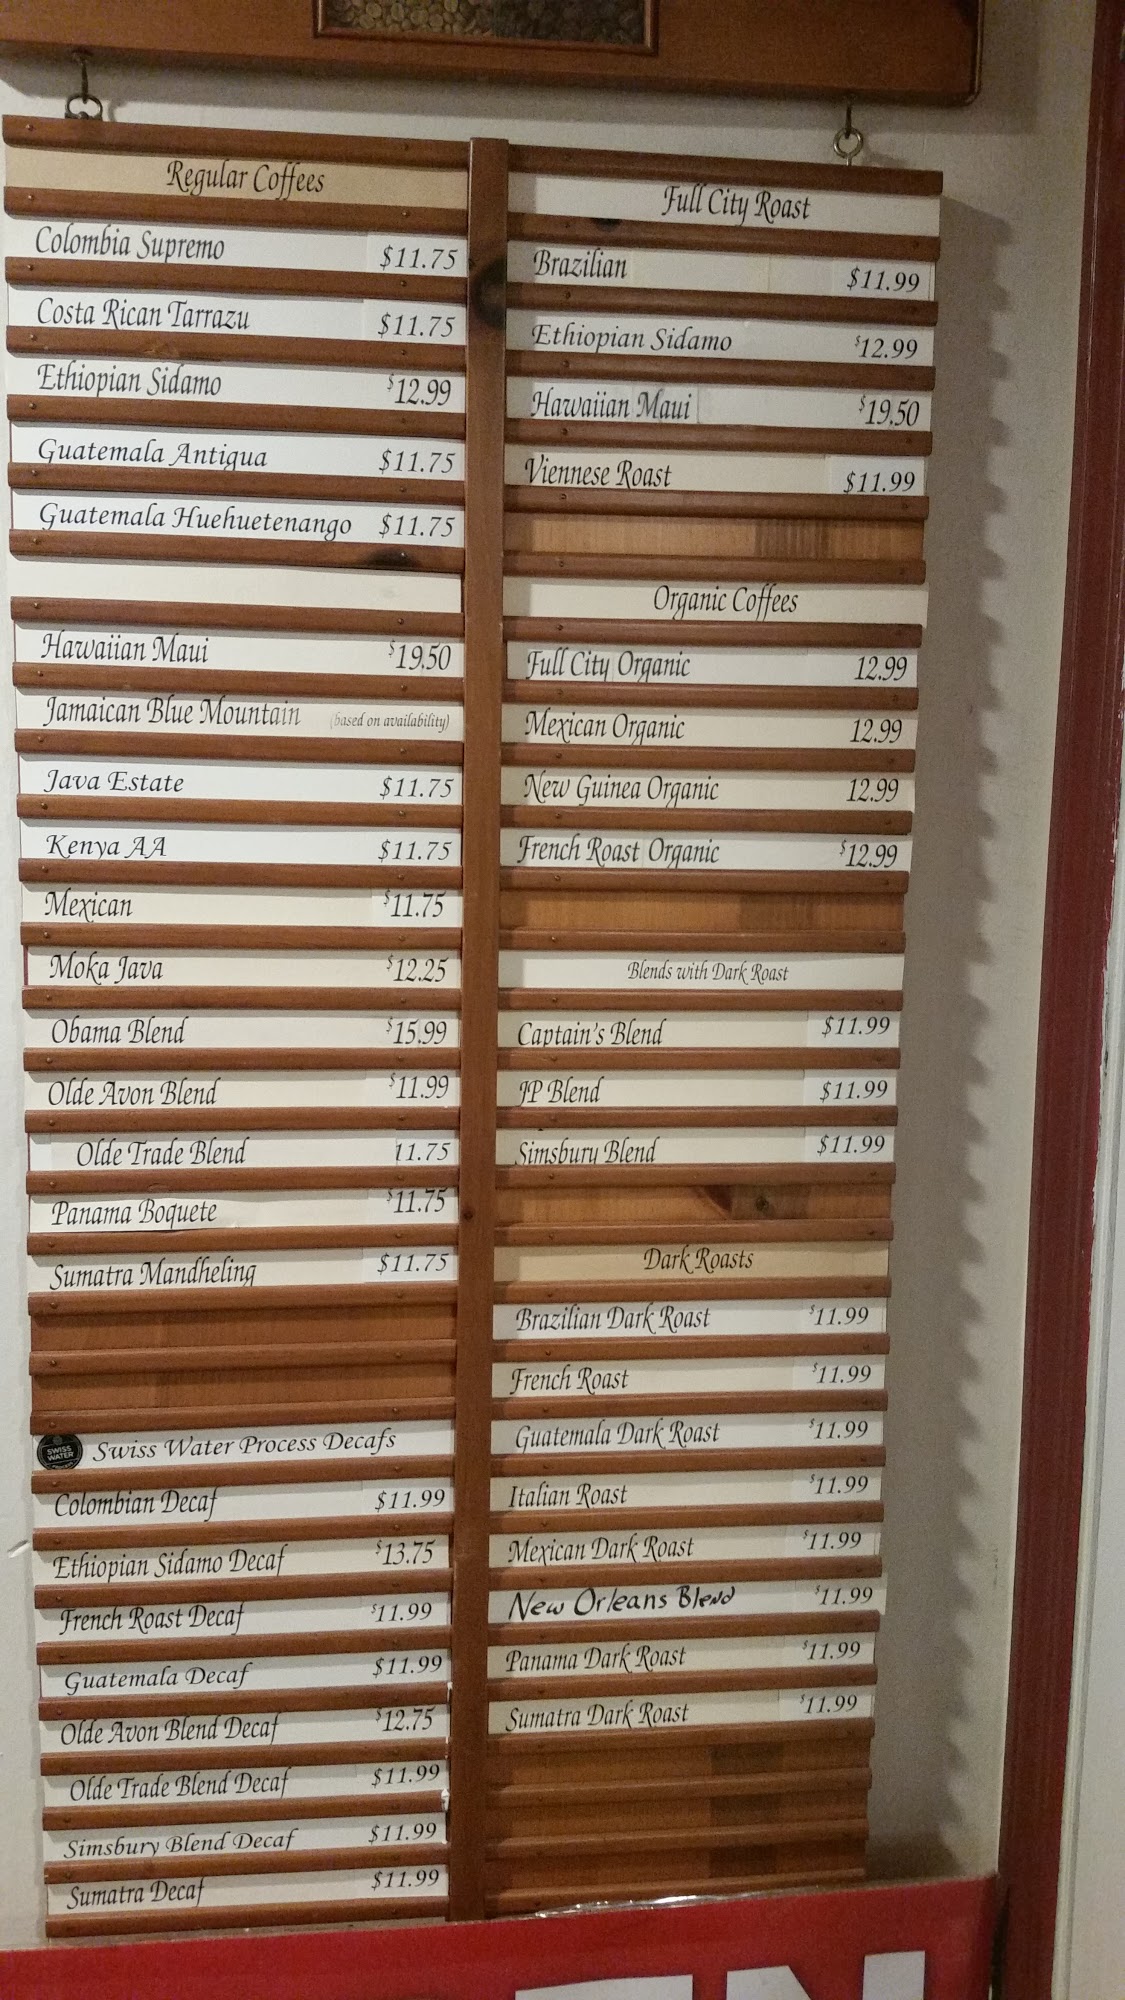 Regular Coffees
Colombia Supremo $11.75
Costa Rican Tarrazu $11.75
Ethiopian Sidamo $12.99
Guatemala Antigua $11.75
Guatemala Huehuetenango $11.75
Hawaiian Maui $19.50
Jamaican Blue Mountain (based on availability)
Java Estate $11.75
Kenya AA $11.75
Mexican $11.75
Moka Java $12.25
Obama Blend $15.99
Olde Avon Blend $11.99
Olde Trade Blend 11.75
Panama Boquete $11.75
Sumatra Mandheling $11.75
SWISS WATER Swiss Water Process Decafs
Colombian Decaf $11.99
Ethiopian Sidamo Decaf $13.75
French Roast Decaf $11.99
Guatemala Decaf $11.99
Olde Avon Blend Decaf $12.75
Olde Trade Blend Decaf $11.99
Simsbury Blend Decaf $11.99
Sumatra Decaf $11.99
Full City Roast
Brazilian $11.99
Ethiopian Sidamo $12.99
Hawaiian Maui $19.50
Viennese Roast $11.99
Organic Coffees
Full City Organic 12.99
Mexican Organic 12.99
New Guinea Organic 12.99
French Roast Organic $12.99
Blends with Dark Roast
Captain's Blend $11.99
JP Blend $11.99
Simsbury Blend $11.99
Dark Roasts
Brazilian Dark Roast $11.99
French Roast $11.99
Guatemala Dark Roast $11.99
Italian Roast $11.99
Mexican Dark Roast $11.99
New Orleans Blend $11.99
Panama Dark Roast $11.99
Sumatra Dark Roast $11.99